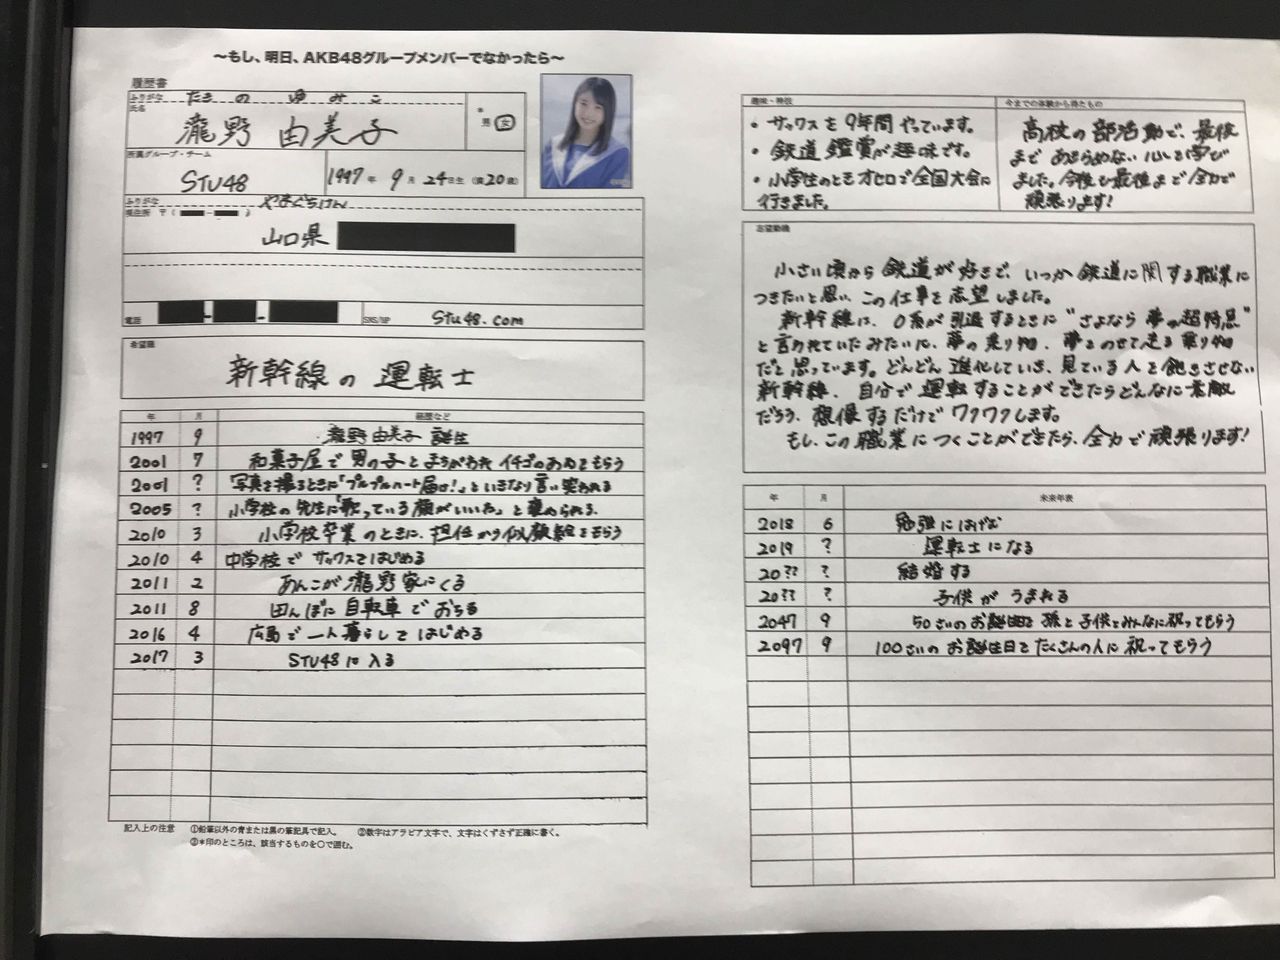 〜もし、明日、AKB48グループメンバーでなかったら〜
履歴書
ふりがな たきの ゆみこ
氏名 瀧野 由美子
* 男 女
所属グループ・チーム
STU48
1997年 9月 24日生 (満20歳)
ふりがな やまぐちけん
現住所 〒( - )
山口県
電話 - -
SNS/HP Stu48.com
希望職
新幹線の 運転士
年 月 経歴など
1997 9 瀧野由美子 誕生
2001 7 和菓子屋で男の子とまちがわれ イチゴのあめをもらう
2001 ? 写真を撮るときに「プルプルハート届け!」といきなり言い笑われる
2005 ? 小学校の先生に「歌っている顔がいいね」と褒められる。
2010 3 小学校卒業のときに、担任から似顔絵をもらう
2010 4 中学校で サックスをはじめる
2011 2 あんこが瀧野家にくる
2011 8 田んぼに自転車でおちる
2016 4 広島で一人暮らしをはじめる
2017 3 STU48に入る
記入上の注意 ①鉛筆以外の青または黒の筆記具で記入。 ②数字はアラビア文字で、文字はくずさず正確に書く。
③*印のところは、該当するものを○で囲む。
趣味・特技
・サックスを9年間やっています。
・鉄道鑑賞が趣味です。
・小学生のときオセロで全国大会に
行きました。
今までの体験から得たもの
高校の部活動で、最後
まであきらめない心を学び
ました。今後も最後まで全力で
頑張ります!
志望動機
小さい頃から鉄道が好きで、いつか鉄道に関する職業に
つきたいと思い、この仕事を志望しました。
新幹線は、0系が引退するときに"さよなら夢の超特急"
と言われていたみたいに、夢の乗り物、夢をのせて走る乗り物
だと思っています。どんどん進化していき、見ている人を飽きさせない
新幹線、自分で運転することができたらどんなに素敵
だろう、想像するだけでワクワクします。
もし、この職業につくことができたら、全力で頑張ります!
年 月 未来年表
2018 6 勉強にはげむ
2019 ? 運転士になる
20?? ? 結婚する
20?? ? 子供がうまれる
2047 9 50さいのお誕生日を孫と子供とみんなに祝ってもらう
2097 9 100さいのお誕生日をたくさんの人に祝ってもらう